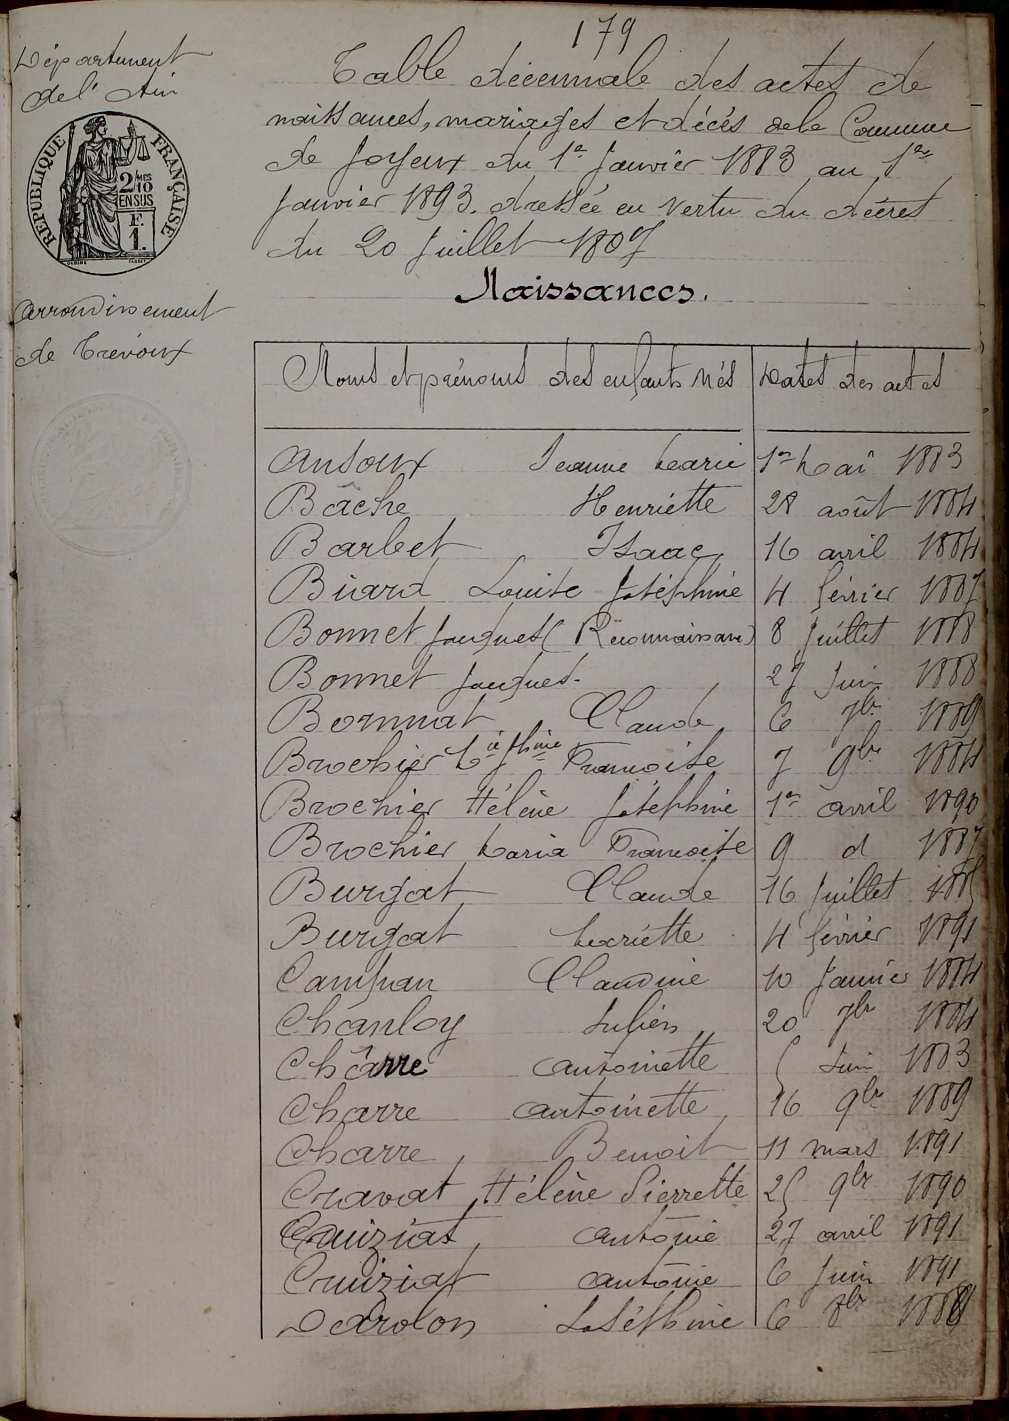 179
Département
de l'Ain
RÉPUBLIQUE FRANÇAISE
2/10MES
EN SUS
F.
1.
arrondissement
de Trévoux
Table décennale des actes de
naissances, mariages et décès de la Commune
de Joyeux du 1er Janvier 1883 au 1er
Janvier 1893. dressée en vertu du décret
du 20 Juillet 1807
Naissances.
Noms et prénoms des enfants nés Dates des actes
Ansoux Jeanne Marie 1er Mai 1883
Bâche Henriette 28 août 1884
Barbet Isaac 16 avril 1884
Biard Louise Joséphine 4 février 1887
Bonnet Jacques (Reconnaissance) 8 Juillet 1888
Bonnet Jacques. 27 Juin 1888
Bornnat Claude 6 7bre 1889
Brochier Françoise 7 9bre 1884
Brochier Hélène Joséphine 1er avril 1890
Brochier Maria Françoise 9 d 1887
Burgat Claude 16 Juillet 1885
Burgat Mariette 4 février 1891
Campan Claudine 10 Janvier 1884
Chanloy Julien 20 7bre 1884
Chârre antoinette 5 Juin 1883
Charre antoinette 16 9bre 1889
Charre Benoit 11 mars 1891
Cravat Hélène Pierrette 25 9bre 1890
Cruiziat antonie 27 avril 1891
Cruiziat antonie 6 Juin 1891
Dardon Joséphine 6 8bre 1888